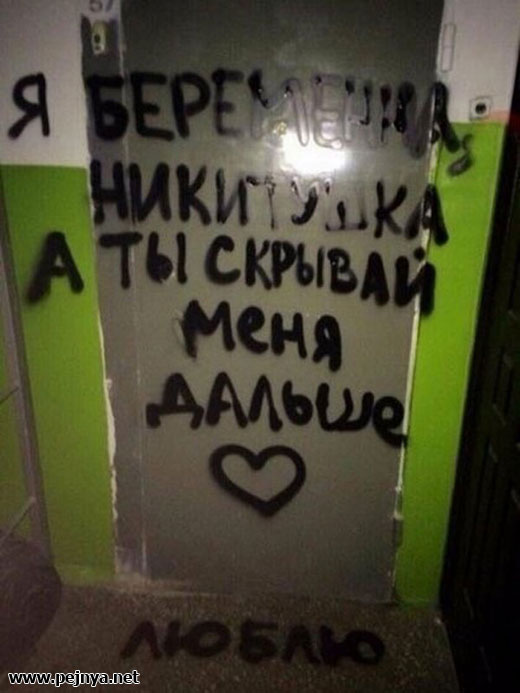 57
Я БЕРЕМЕННА,
НИКИТУШКА
А ТЫ СКРЫВАЙ
МЕНЯ
ДАЛЬШЕ
ЛЮБЛЮ
www.pejnya.net